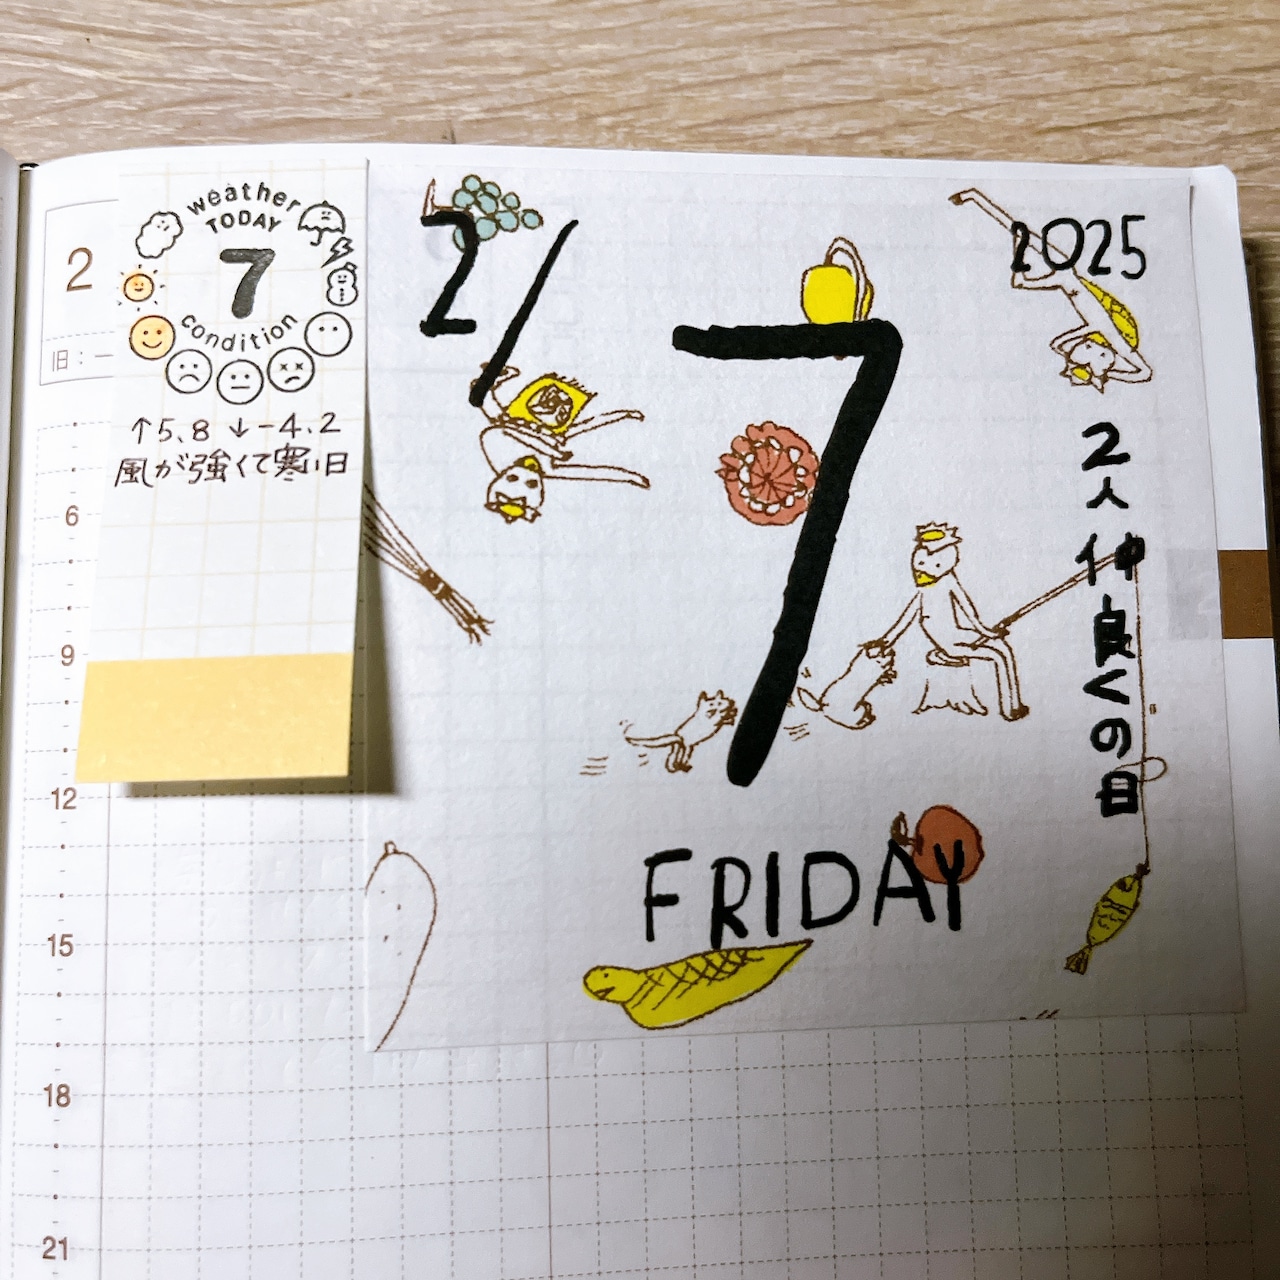 2
旧：一
weather
TODAY
7
condition
↑5.8 ↓-4.2
風が強くて寒い日
6
9
12
15
18
21
2/7
2025
2人仲良くの日
FRIDAY